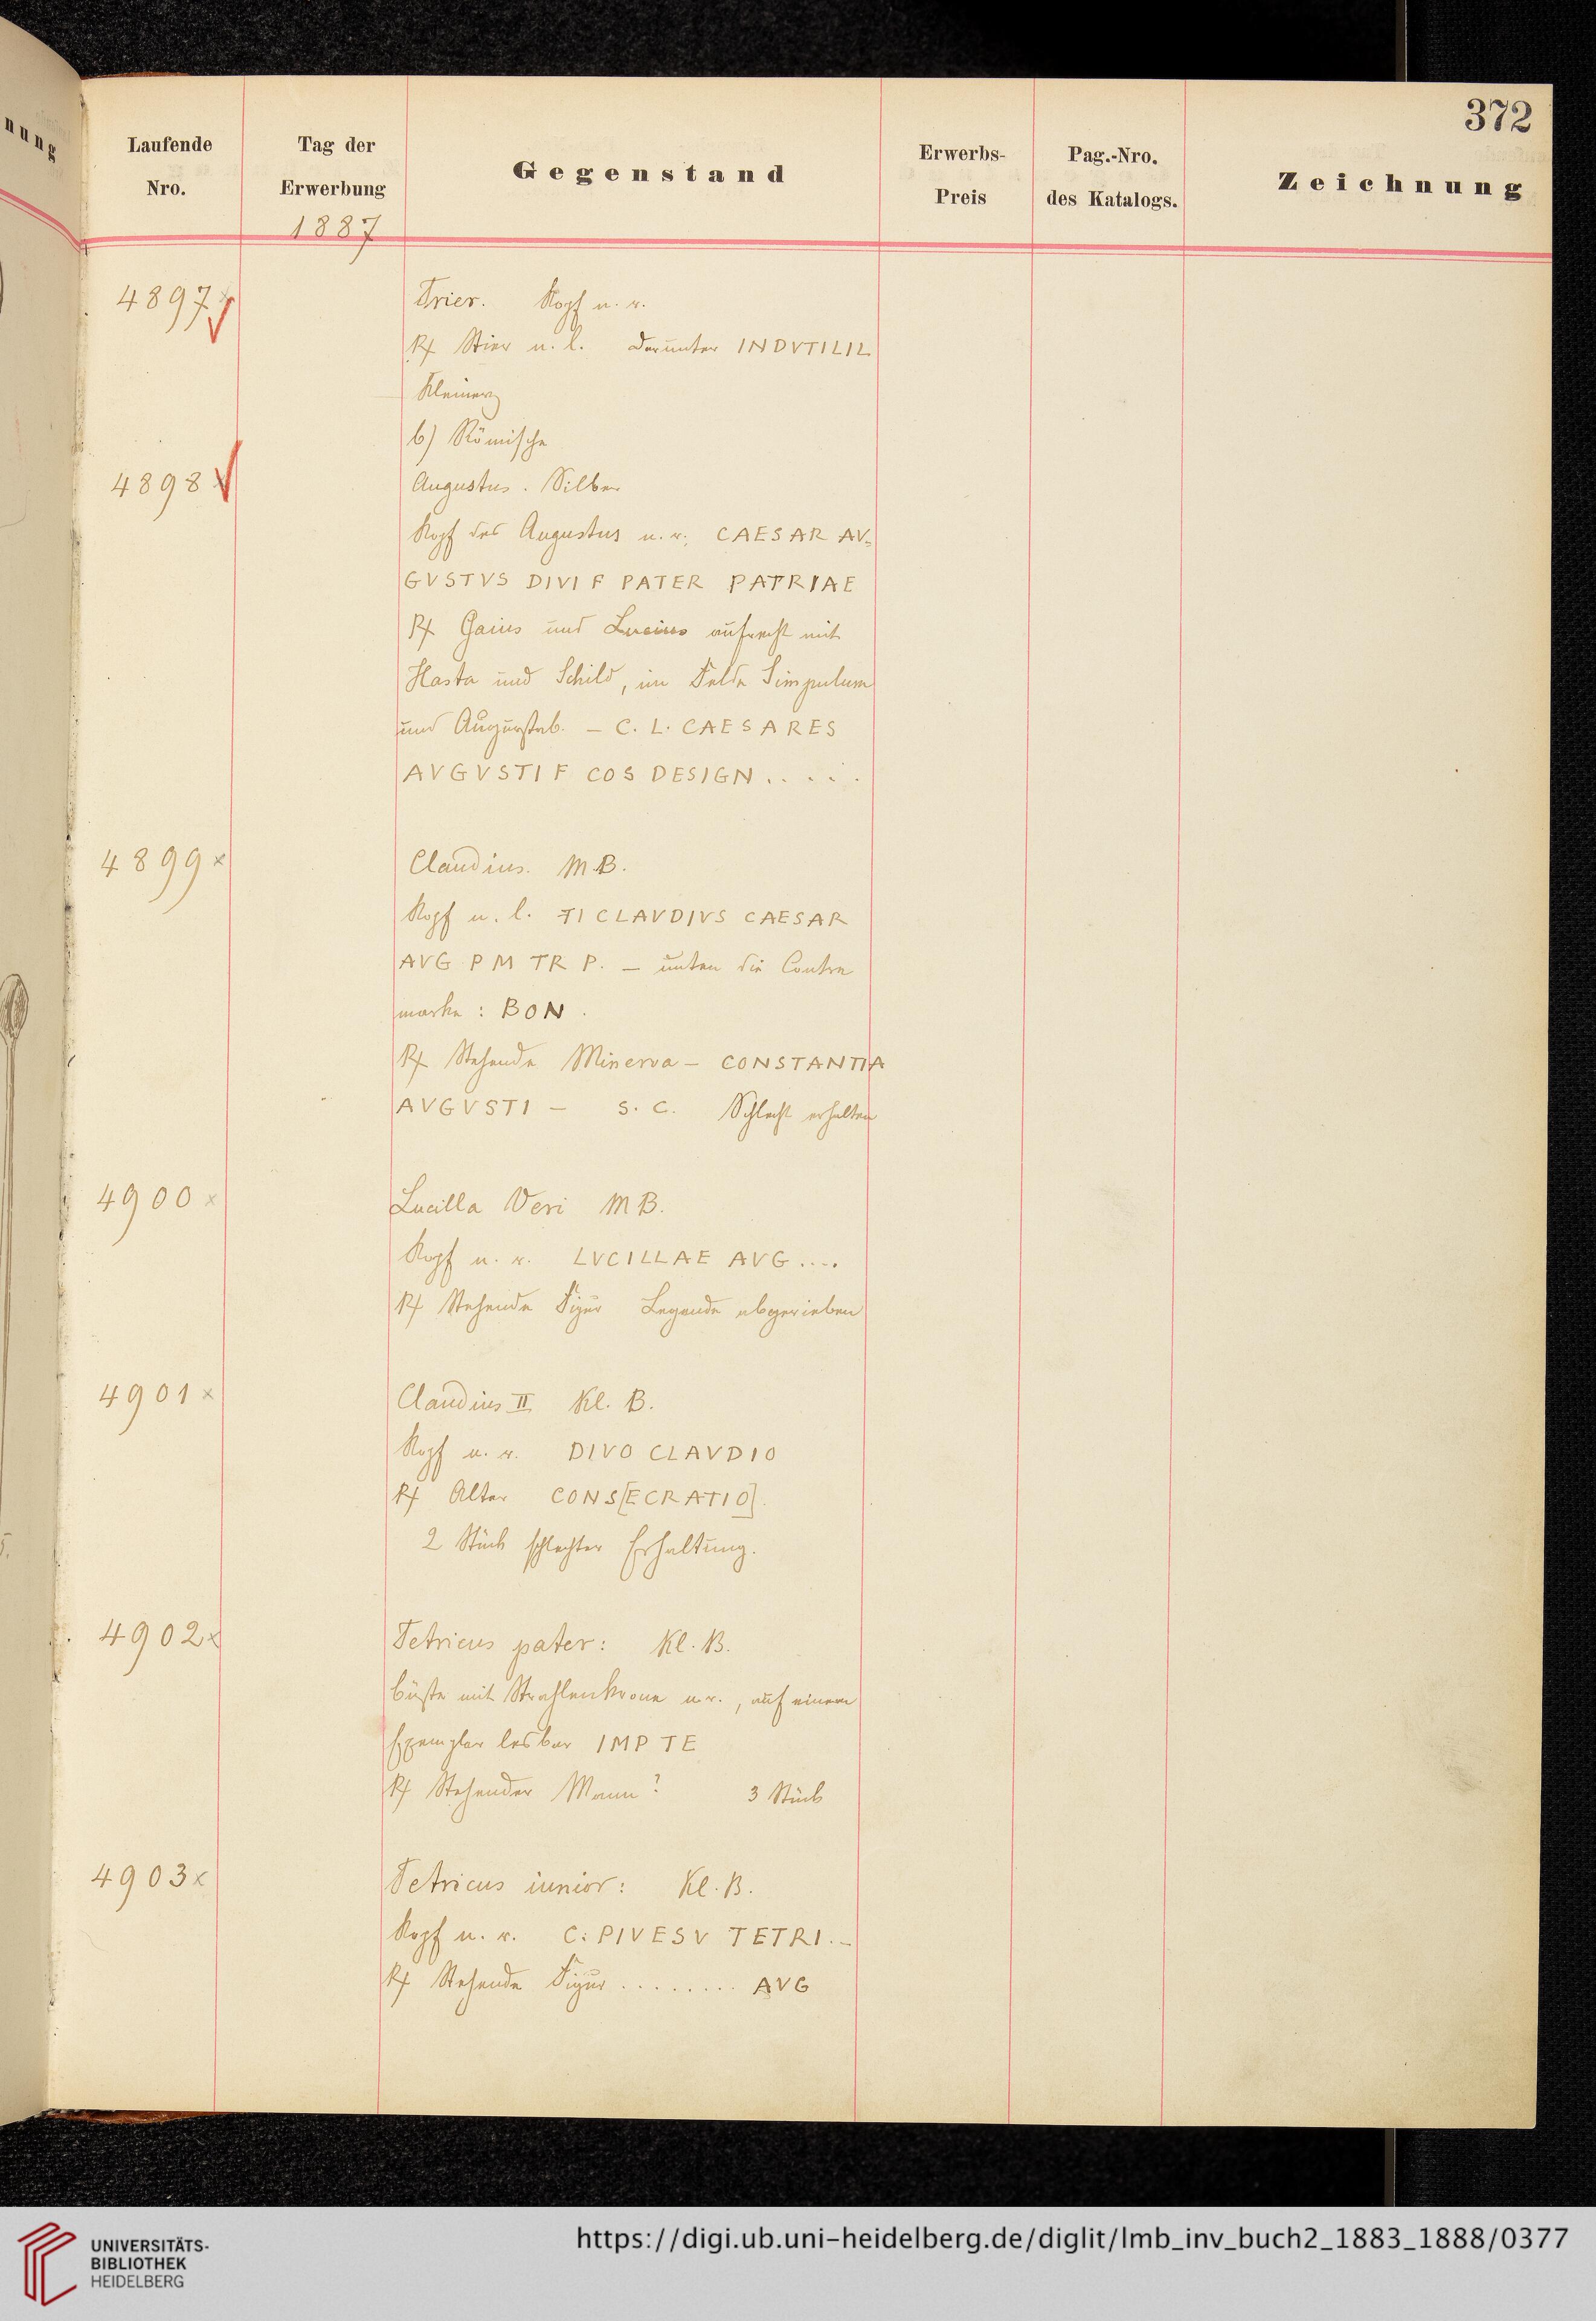 372
Laufende
Nro.
Tag der
Erwerbung
1887
Gegenstand
Erwerbs-
Preis
Pag.-Nro.
des Katalogs.
Zeichnung
nung
4897 x
Trier. Kopf n. r.
Rf Stier n. l. darunter INDVTILIL
Kleinerz
b) Römische
4898 x
Augustus. Silber
Kopf des Augustus n. r. CAESAR AV-
GVSTVS DIVI F PATER PATRIAE
Rf Gaius und Lucius aufrecht mit
Hasta und Schild, im Felde Simpulum
und Augurstab. — C. L. CAESARES
AVGVSTI F COS DESIGN.....
4899 x
Claudius. M.B.
Kopf n. l. TI CLAVDIVS CAESAR
AVG P M TR P. — unten die Contre
marke: BON.
Rf Stehende Minerva — CONSTANTIA
AVGVSTI — S. C. Schlecht erhalten
4900 x
Lucilla Veri MB.
Kopf n. r. LVCILLAE AVG....
Rf Stehende Figur Legende abgerieben
4901 x
Claudius II Kl. B.
Kopf n. r. DIVO CLAVDIO
Rf Altar CONS[ECRATIO].
2 Stück schlechter Erhaltung.
4902 x
Tetricus pater: Kl. B.
Büste mit Strahlenkrone n. r., auf einem
Exemplar lesbar IMP TE
Rf Stehender Mann? 3 Stück
4903 x
Tetricus iunior: Kl. B.
Kopf n. r. C: PIVESV TETRI.-
Rf Stehende Figur ......... AVG
UNIVERSITÄTS-
BIBLIOTHEK
HEIDELBERG
https://digi.ub.uni-heidelberg.de/diglit/lmb_inv_buch2_1883_1888/0377